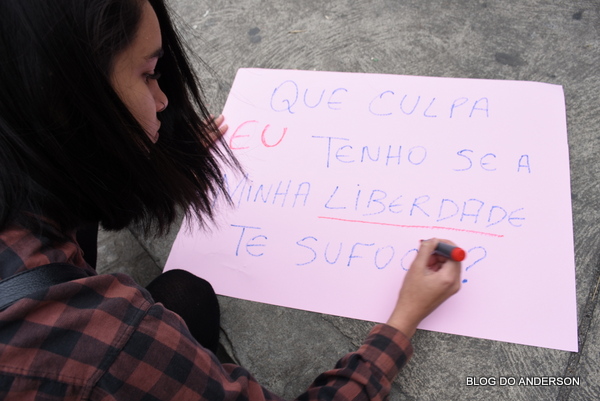 QUE CULPA
EU TENHO SE A
MINHA LIBERDADE
TE SUFOCA?
BLOG DO ANDERSON